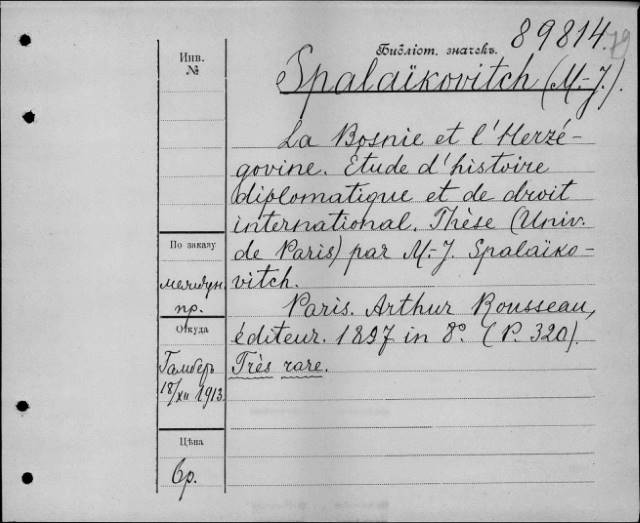 Библіот. значекъ. 89814
79
Инв.
№
Spalaïkovitch (M.-J.).
La Bosnie et l'Herzé-
govine. Étude d'histoire
diplomatique et de droit
international. Thèse (Univ.
de Paris) par M.-J. Spalaïko-
vitch.
По заказу
междун.
пр.
Paris. Arthur Rousseau,
éditeur. 1897 in 8°. (P. 320).
Откуда
Très rare.
Гамберъ
18/XII 1913.
Цѣна
6р.